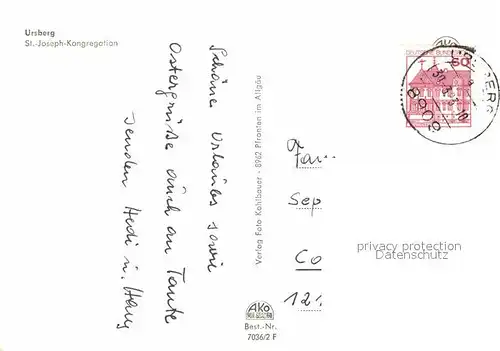 Ursberg
St.-Joseph-Kongregation
Schöne Urlaubs sowie
Ostergrüße auch an Tante
senden Hedi u. Hans
Verlag Foto Kohlbauer - 8962 Pfronten im Allgäu
AKO
Best.-Nr.
7036/2 F
DEUTSCHE BUNDESPOST
60
URSBERG
8909
Fam
Sep
Co
12
privacy protection
Datenschutz